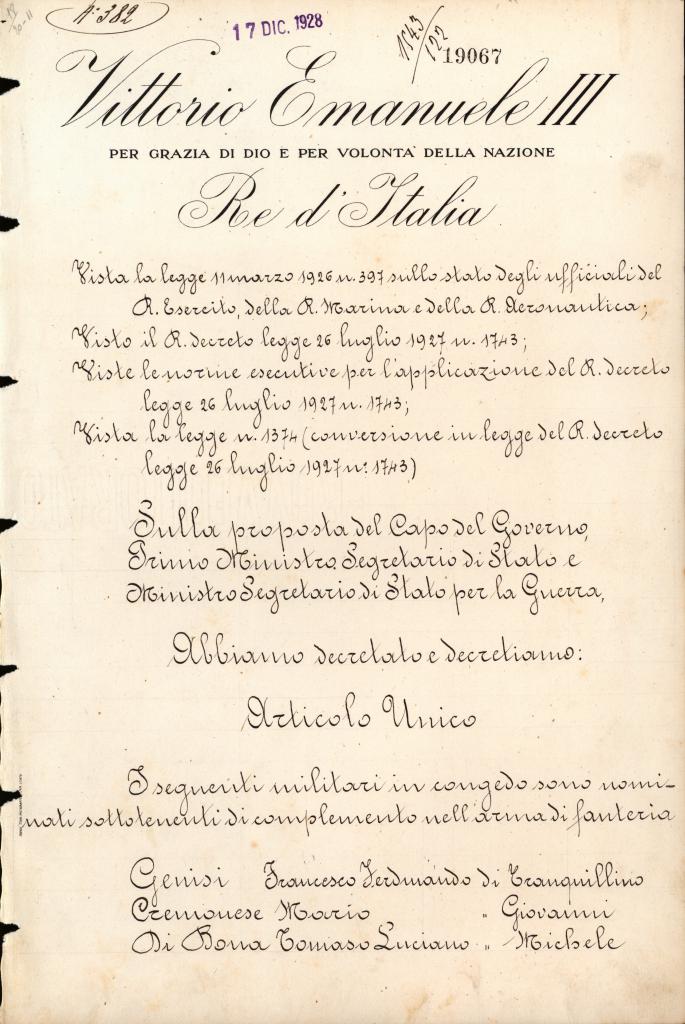 N. 382
17 DIC. 1928
1543/122
19067
Vittorio Emanuele III
PER GRAZIA DI DIO E PER VOLONTA' DELLA NAZIONE
Re d'Italia
Vista la legge 11 marzo 1926 n. 397 sullo stato degli ufficiali del
R. Esercito, della R. Marina e della R. Aeronautica;
Visto il R. decreto legge 26 luglio 1927 n. 1743;
Viste le norme esecutive per l'applicazione del R. decreto
legge 26 luglio 1927 n. 1743;
Vista la legge n. 1374 (conversione in legge del R. decreto
legge 26 luglio 1927 n. 1743)
Sulla proposta del Capo del Governo,
Primo Ministro, Segretario di Stato e
Ministro Segretario di Stato per la Guerra,
Abbiamo decretato e decretiamo:
Articolo Unico
I seguenti militari in congedo sono nomi-
nati sottotenenti di complemento nell'arma di fanteria
Genisi Francesco Ferdinando di Tranquillino
Cremonese Mario " Giovanni
Di Bona Tomaso Luciano " Michele